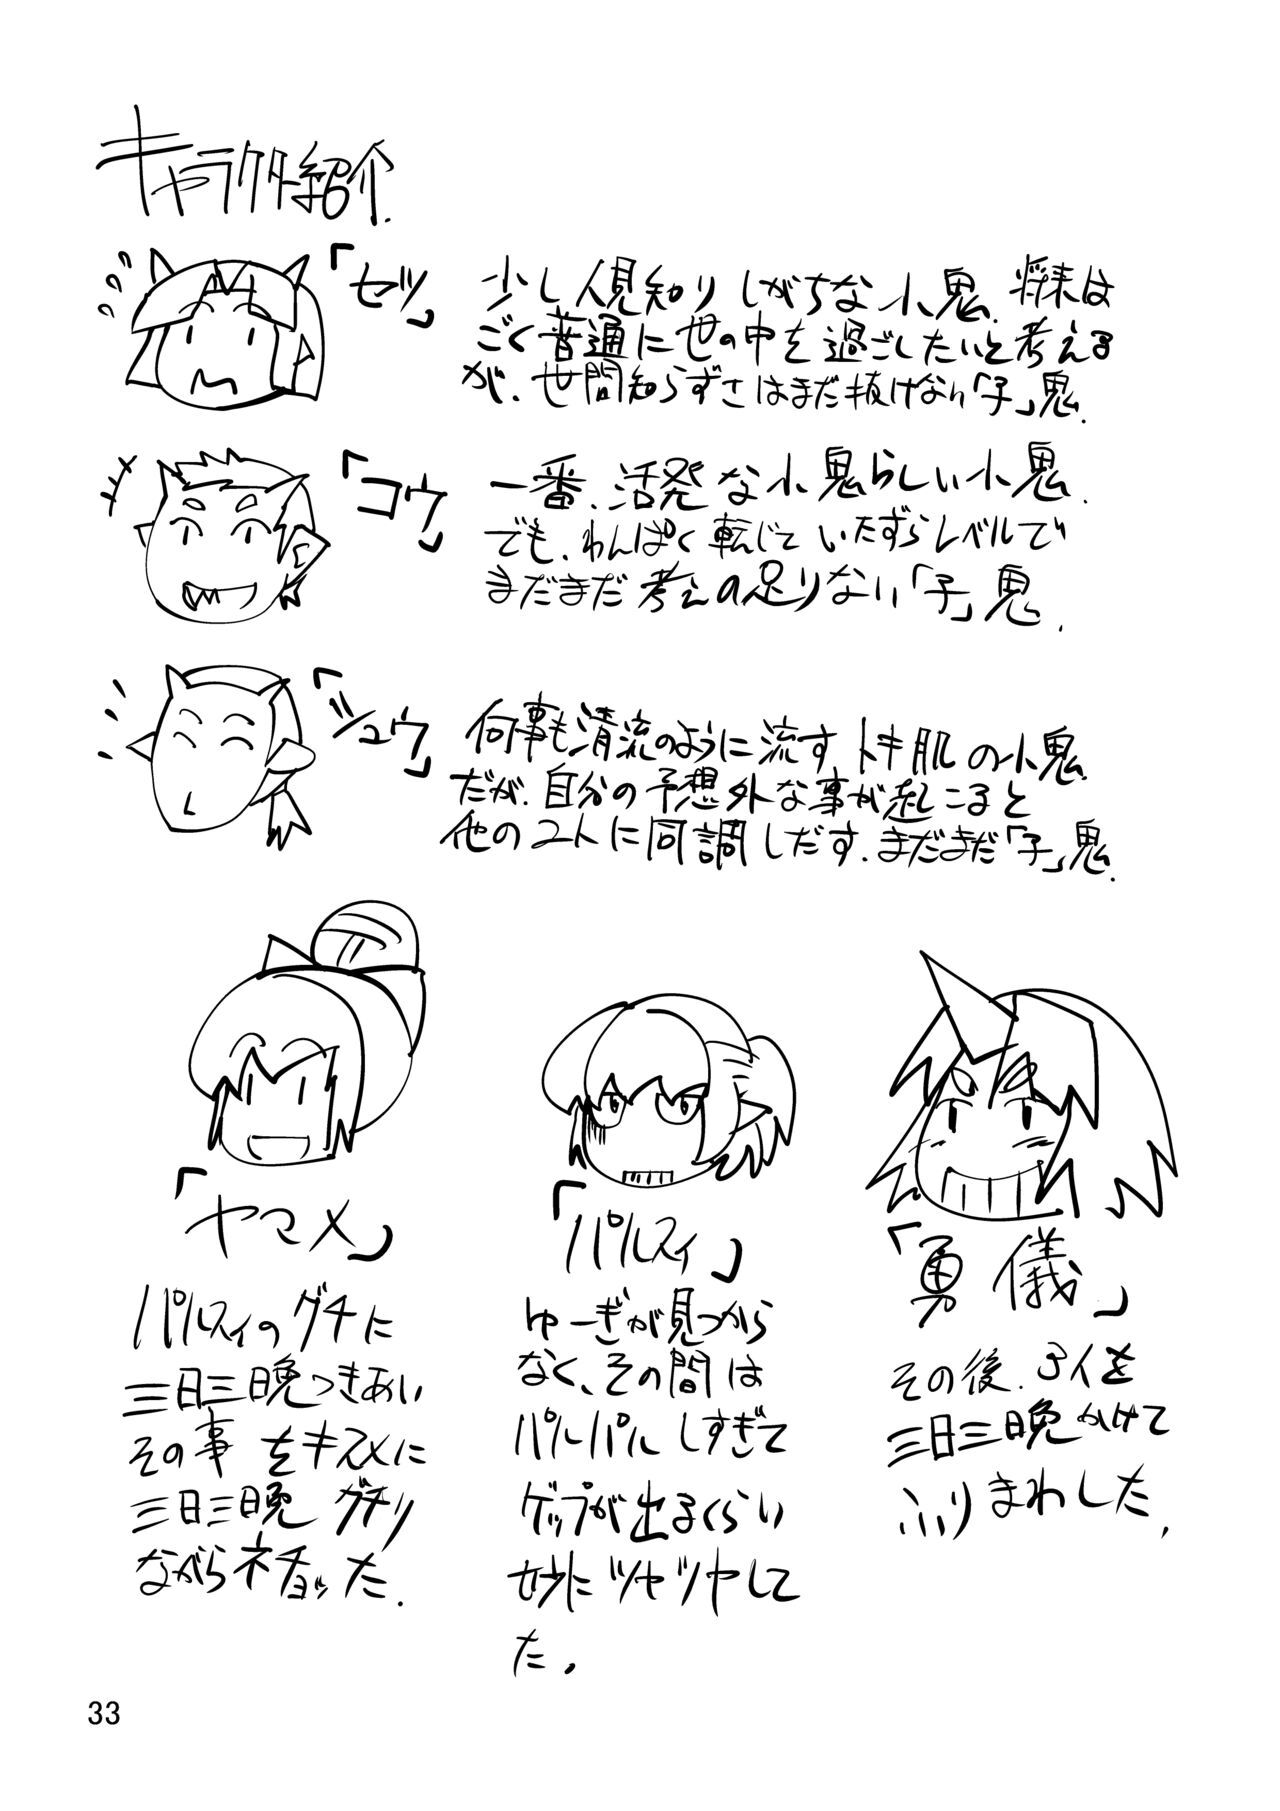 キャラクター紹介.
「セツ」
少し人見知りしがちな小鬼.将来は
ごく普通に世の中を過ごしたいと考える
が、世間知らずさはまだ抜けない「子」鬼.
「コウ」
一番、活発な小鬼らしい小鬼.
でも、わんぱく転じていたずらレベルで
まだまだ考えの足りない「子」鬼.
「ジュウ」
何事も清流のように流すトキ肌の小鬼.
だが、自分の予想外な事が起こると
他のコトに同調しだす、まだまだ「子」鬼.
「ヤマメ」
パルスィのグチに
三日三晩つきあい
その事をキスメに
三日三晩グチり
ながらネチョッた.
「パルスィ」
ゆーぎが見つから
なく、その間は
パルパルしすぎて
ゲップが出るくらい
妙にツヤツヤして
た。
「勇儀」
その後、3人を
三日三晩かけて
ふりまわした.
33